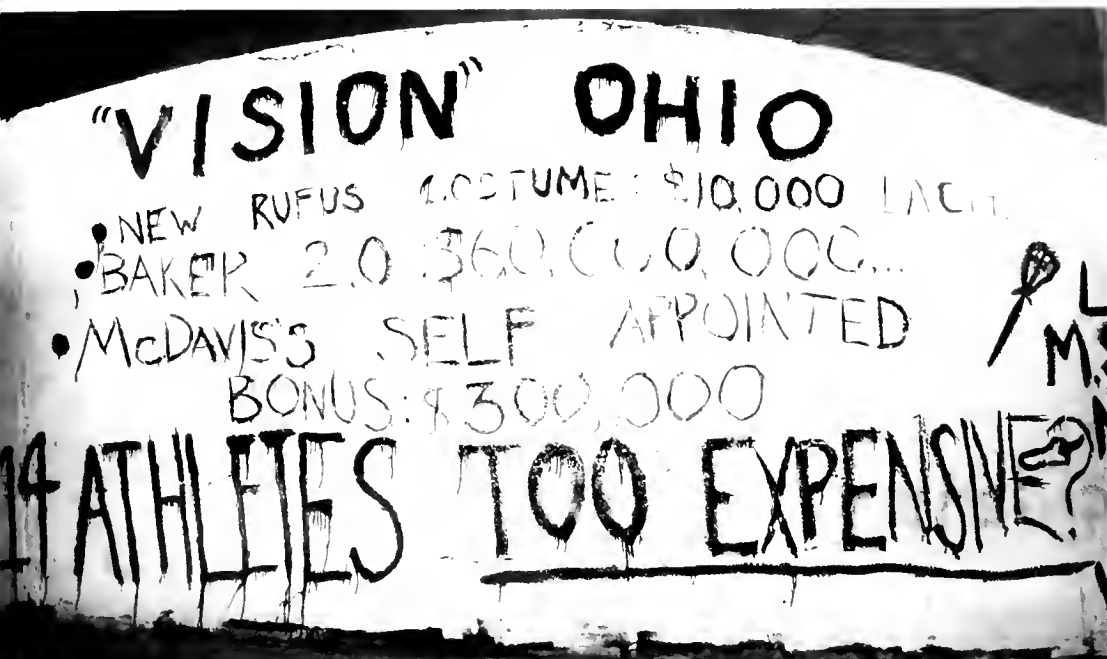 "VISION" OHIO
• NEW RUFUS COSTUME: $10,000 EACH
• BAKER 2.0 $60,000,000...
• McDAVIS'S SELF APPOINTED
BONUS: $300,000
14 ATHLETES TOO EXPENSIVE?
L
M.